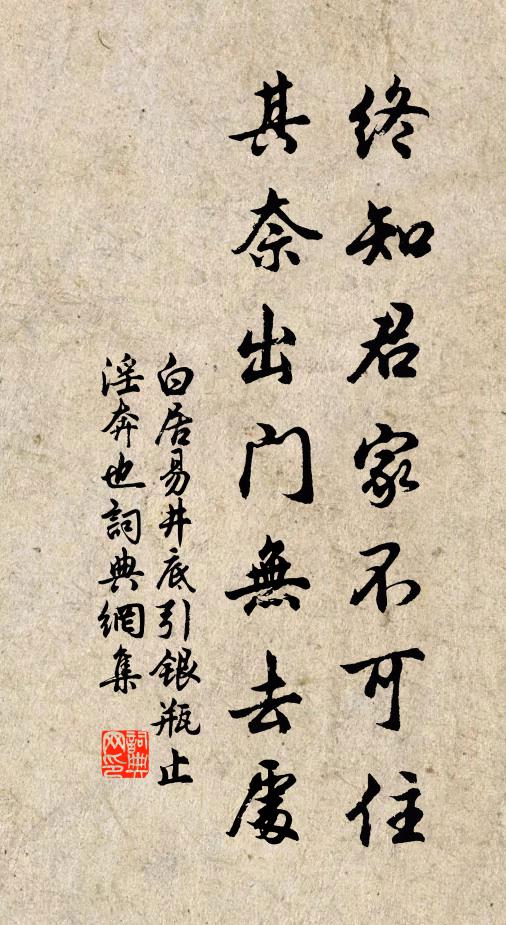 終知君家不可住
其奈出門無去處
白居易井底引銀瓶止
淫奔也詞典網集
詞典
网印